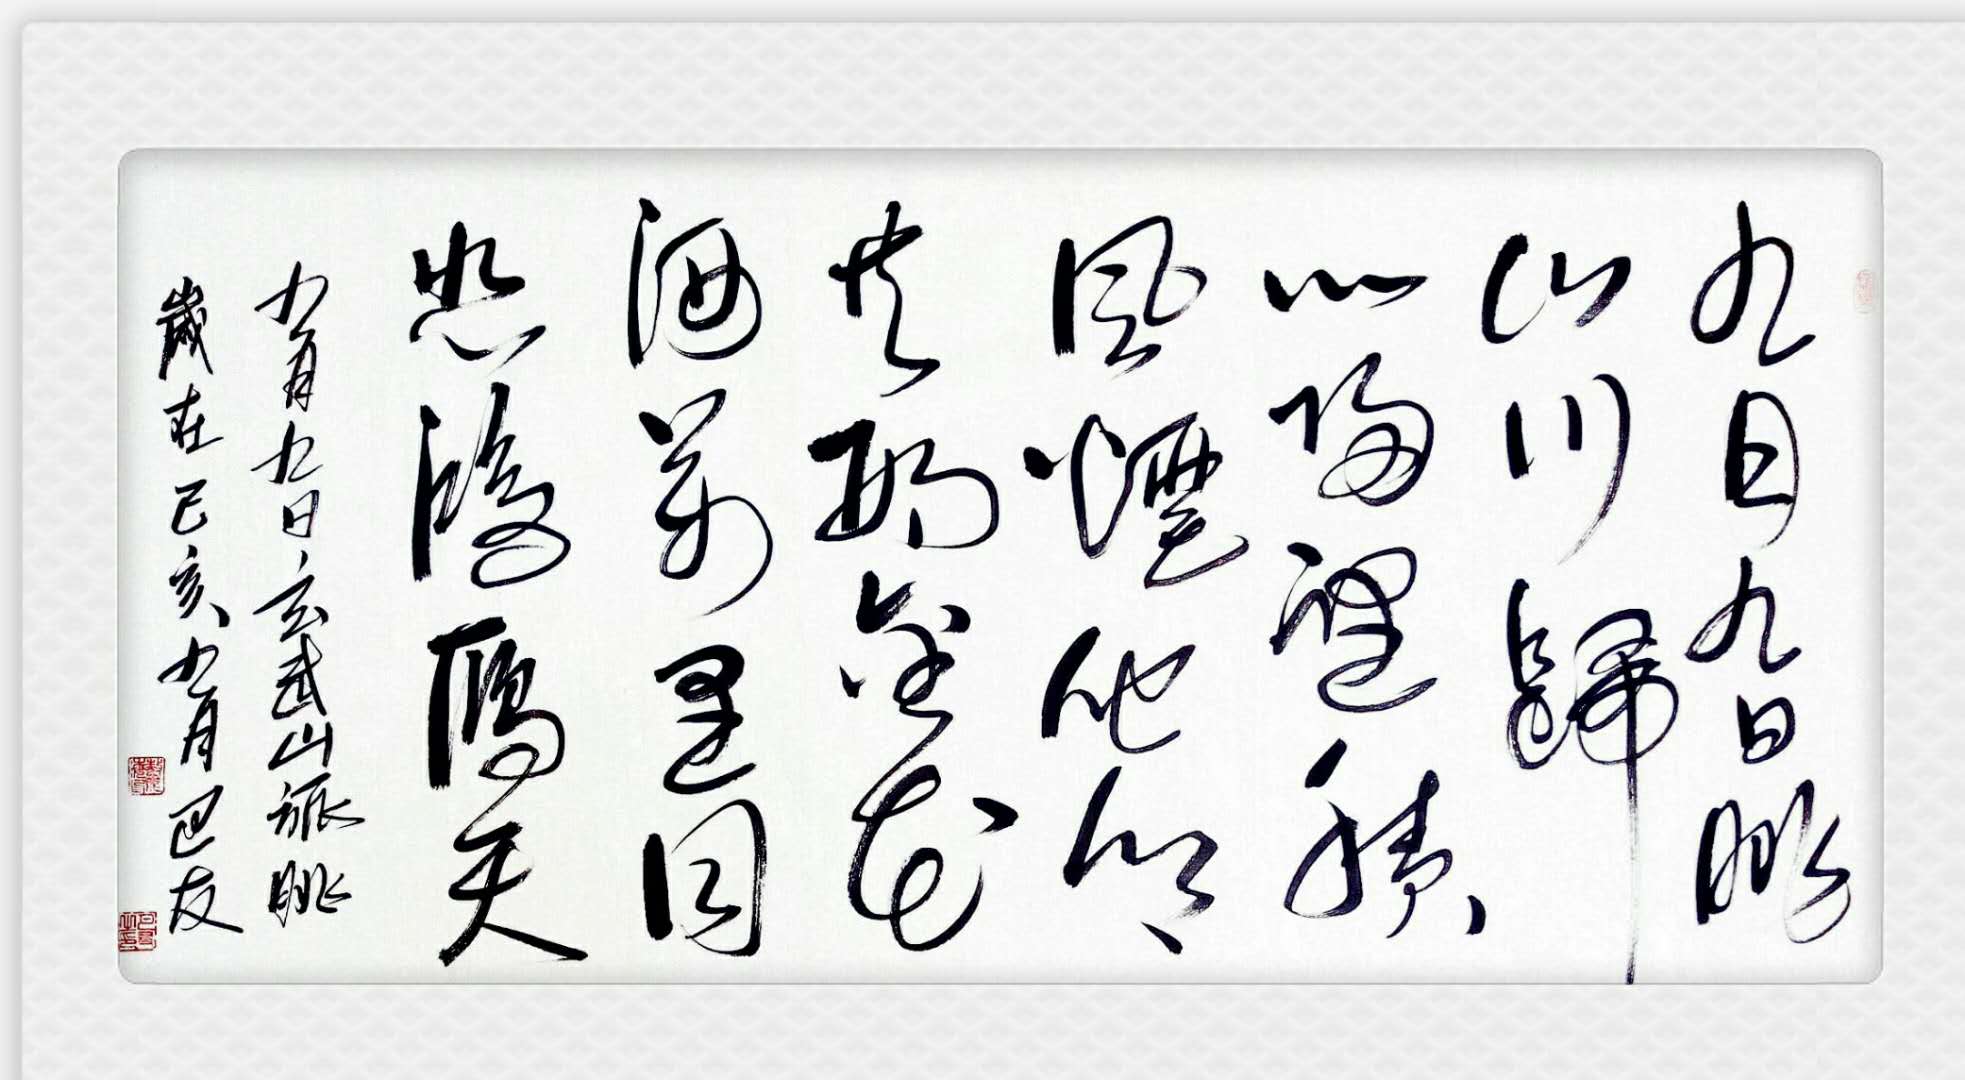 九月九日眺
山川歸
心歸望積
風煙他鄉
共酌金花
酒萬里同
悲鴻鴈天
九月九日玄武山旅眺
歲在己亥九月巴友